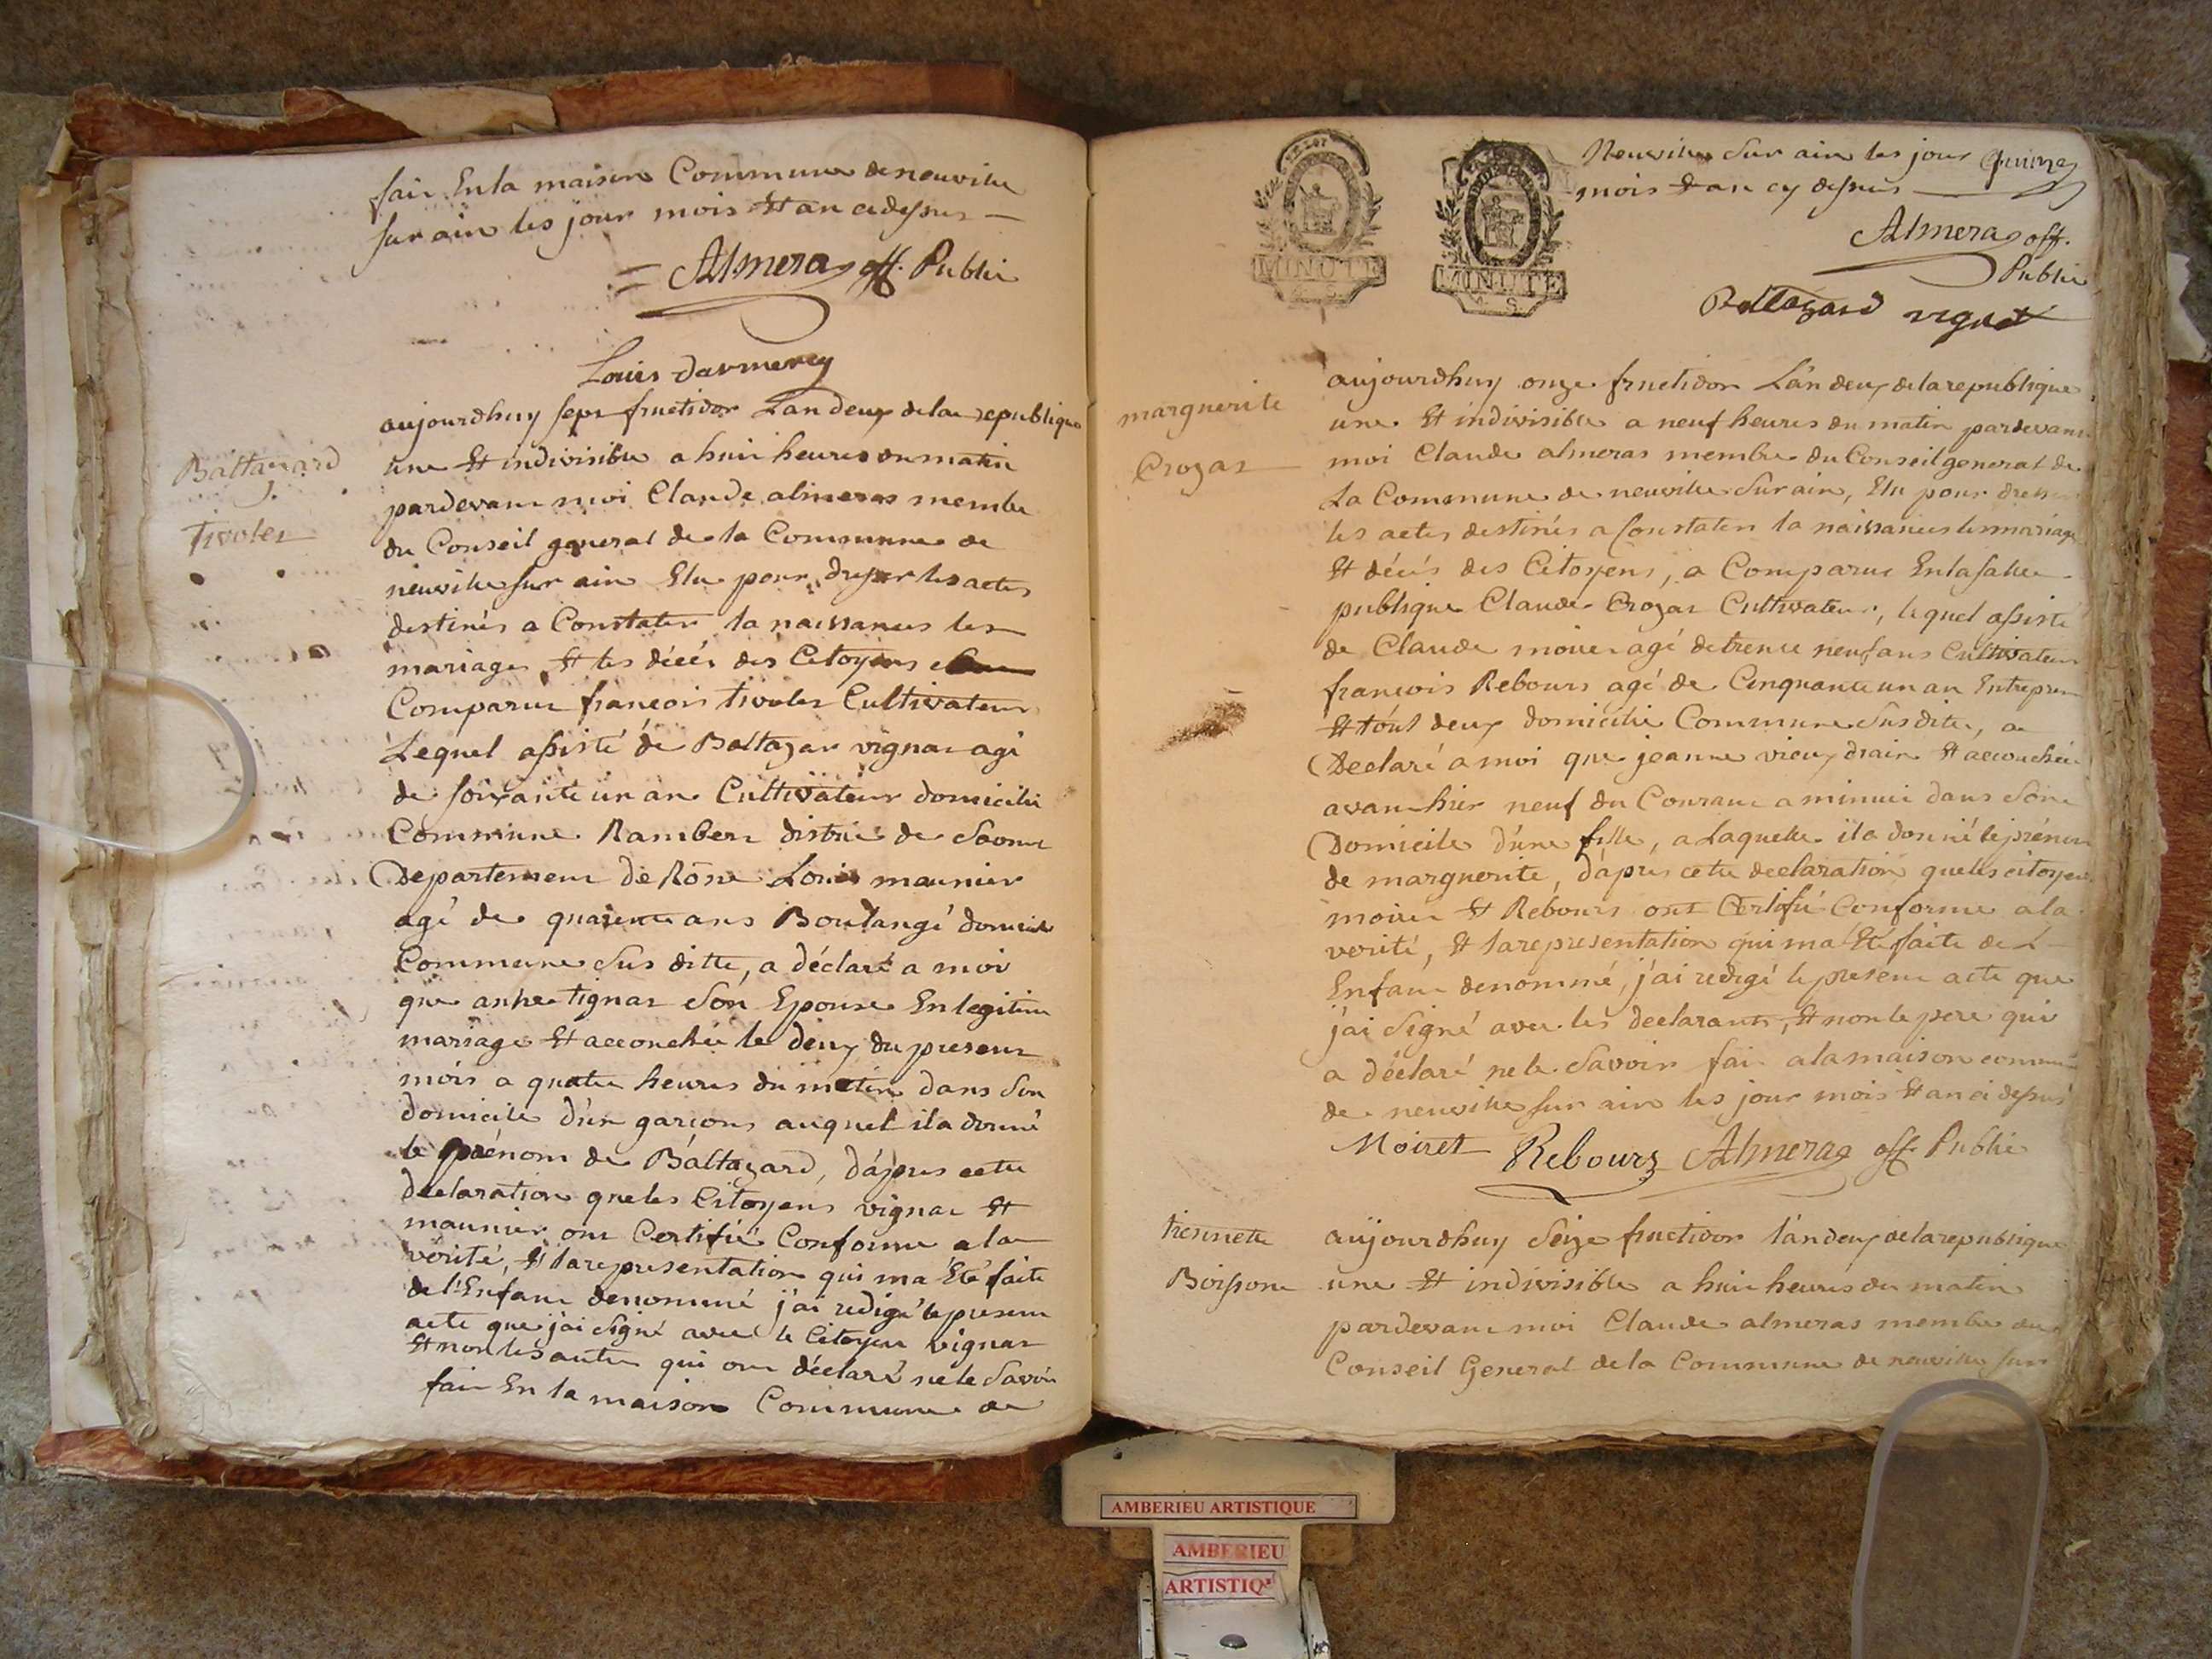 fait En la maison Commune de neuville
sur ain les jour mois Et an ci dessus —
= Almeras off. Public
Louis Darmerey
aujourdhuy sept fructidor Lan deux de la republique
Baltazard
une Et indivisible a huit heures du matin
pardevant moi Claude almeras membre
Tivolet
du Conseil general de la Commune de
neuville sur ain Elu pour dresser les actes
destinés a Constater la naissances les
mariages Et les décés des Citoyens
Comparut françois tivolet Cultivateur
Lequel assisté de Baltazar vignat agé
de soixante un an Cultivateur domicilié
Commune Rambert district de
Departement de Rône Louis maunier
agé de quarente ans Boulangé domicilié
Commune sus ditte, a déclaré a moi
que anne tignat son Epouse En legitime
mariage Et accouchée le deux du present
mois a quatre heures du matin dans son
domicile d'un garçons auquel il a donné
le prénom de Baltazard, d'apres cette
declaration que les Citoyens vignat Et
maunier ont Certifié Conforme a la
vérité, Et la representation qui ma Eté faite
de l'Enfant denommé j'ai redigé le present
acte que j'ai signé avec le Citoyen vignat
Et non les autre qui ont déclaré ne le savoir
fait En la maison Commune de
MINUTE
MINUTE
4. S.
Neuville sur ain les jour
mois Et an cy dessus
Almeras off.
Public
Baltazard vignat
aujourdhuy onze fructidor L'an deux de la republique
marguerite
une Et indivisible a neuf heures du matin pardevant
Crozat
moi Claude almeras membre du Conseil general de
La Commune de neuville sur ain, Elu pour dresser
les actes destinés a Constater la naissances les mariage
Et décés des Citoyens, a Comparut En la salle
publique Claude Crozat Cultivateur, lequel assisté
de Claude moiret agé de trente neuf ans Cultivateur
françois Rebours agé de Cinquante un an Entrepren
Et tout deux domicilié Commune susdite, a
Declaré a moi que jeanne vieux drain Et accouchée
avant hier neuf du Courant a minuit dans son
Domicile d'une fille, a Laquelle il a donné le prénom
de marguerite, d'apres cette declaration que les citoyens
moiret Et Rebours ont Certifié Conforme a la
verité, Et la representation qui ma Eté faite de L
Enfant denommé, j'ai redigé le present acte que
j'ai signé avec les declarants, Et non le pere qui
a déclaré ne le savoir fait a la maison commune
de neuville sur ain les jour mois Et an ci dessus
Moiret Rebours Almeras off. Public
tiennette aujourdhuy seize fructidor l'an deux de la republique
Boissone une Et indivisible a huit heures du matin
pardevant moi Claude almeras membre du
Conseil General de la Commune de neuville sur
AMBERIEU ARTISTIQUE
AMBERIEU
ARTISTIQ